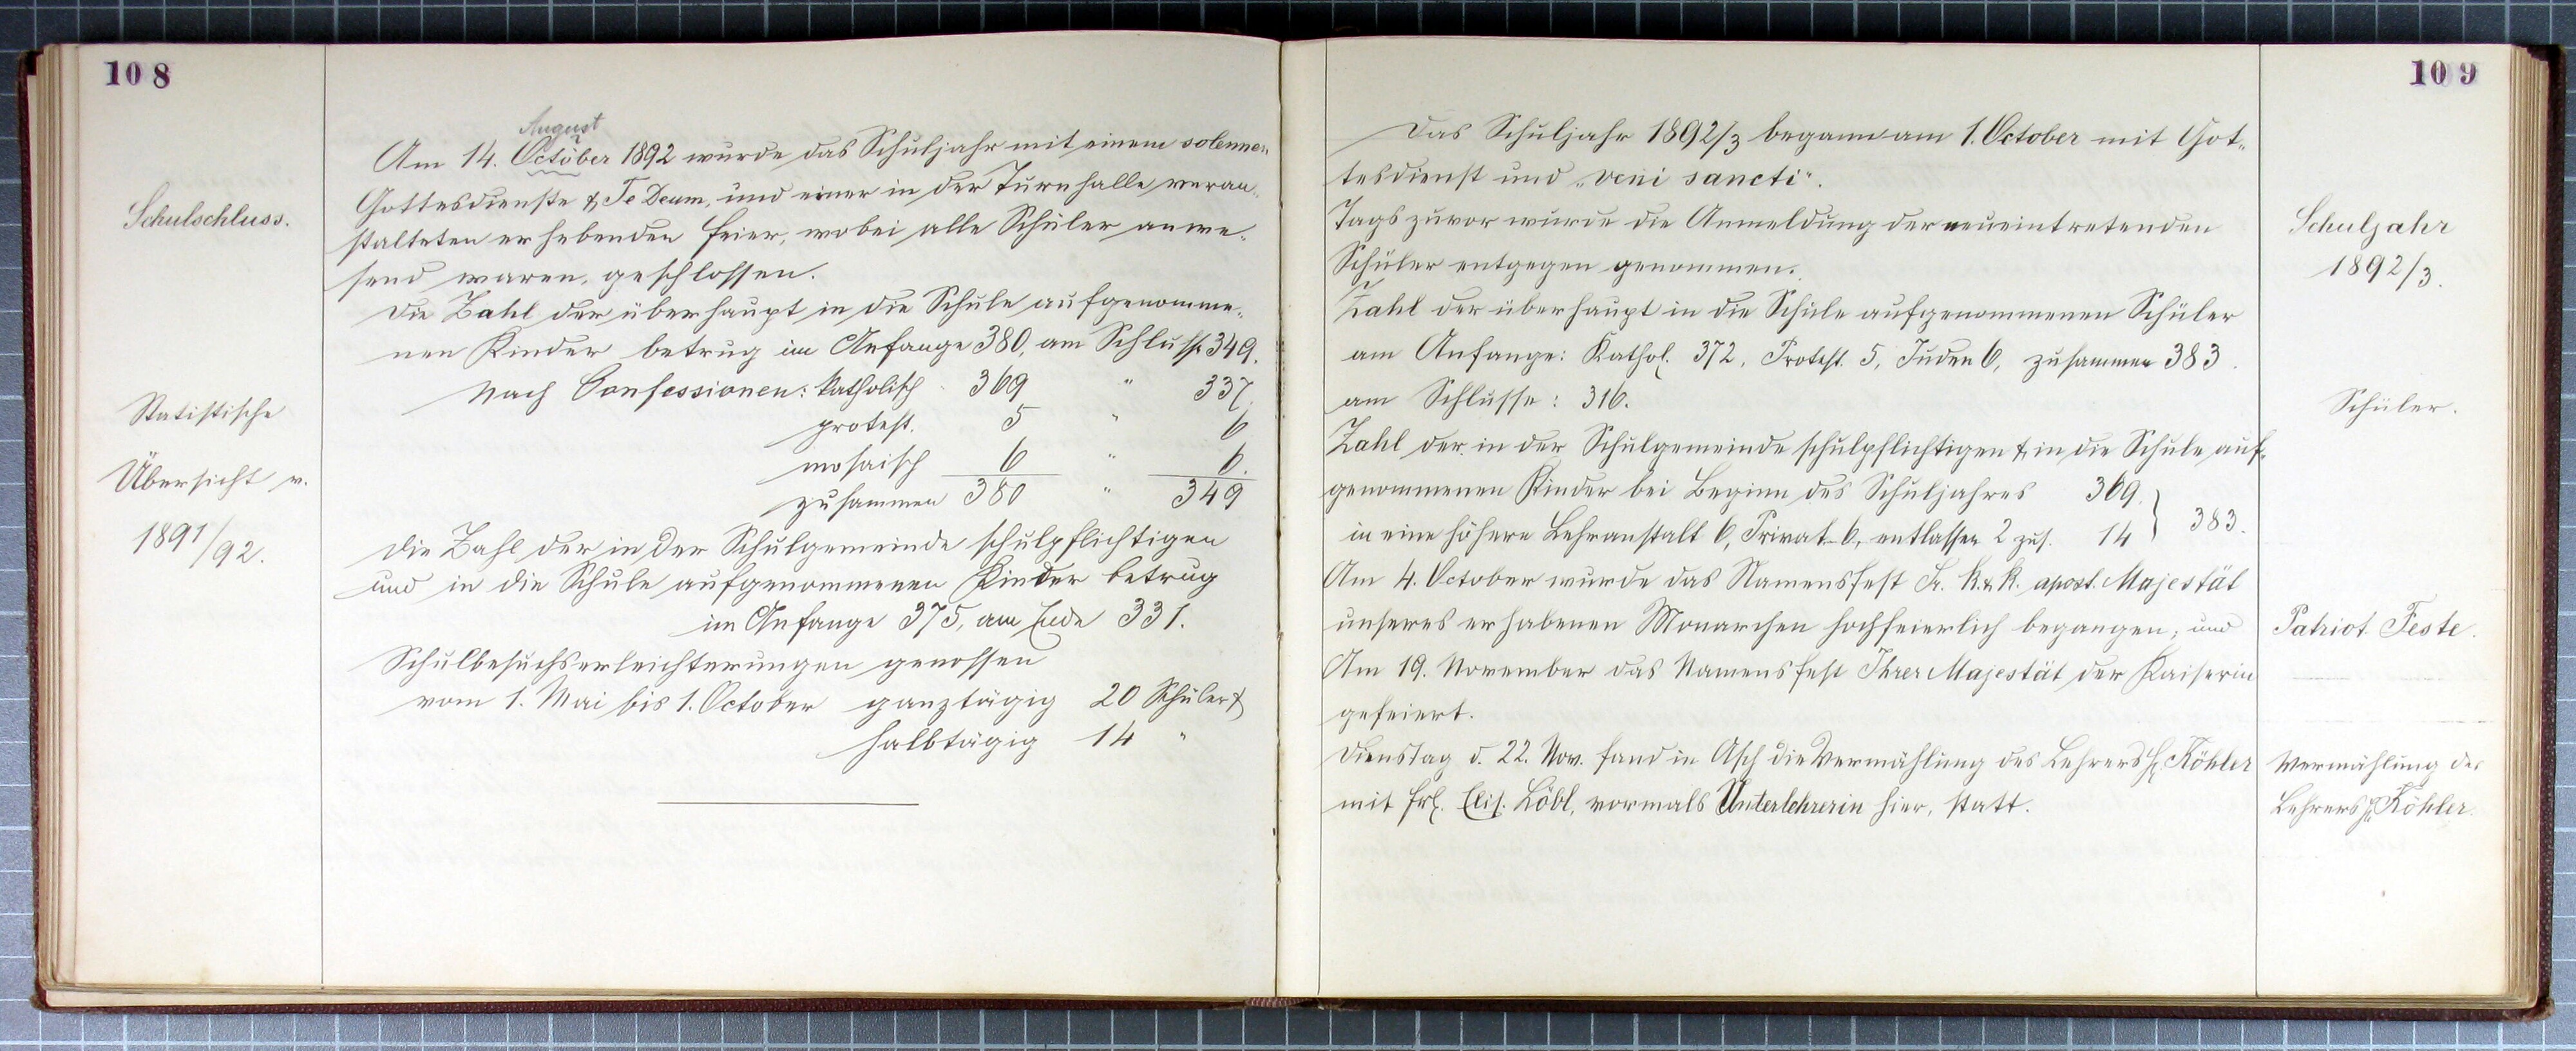 108
Schulschluss.
August
Am 14. October 1892 wurde das Schuljahr mit einem solennen
Gottesdienste & Te Deum, und einer in der Turnhalle veran-
stalteten erhebenden Feier, wobei alle Schüler anwe-
send waren, geschlossen.
Statistische
Übersicht v.
1891/92.
Die Zahl der überhaupt in die Schule aufgenomme-
nen Kinder betrug im Anfange 380, am Schlusse 349.
Nach Confessionen: katholisch 369 " 337.
protest. 5 " 6
mosaisch 6 " 6.
zusammen 380 " 349
Die Zahl der in der Schulgemeinde schulpflichtigen
und in die Schule aufgenommenen Kinder betrug
im Anfange 375, am Ende 331.
Schulbesuchserleichterungen genossen
vom 1. Mai bis 1. October ganztägig 20 Schüler &
halbtägig 14 "
109
Das Schuljahr 1892/3 begann am 1. October mit Got-
tesdienst und „veni sancti".
Schuljahr
1892/3.
Tags zuvor wurde die Anmeldung der neueintretenden
Schüler entgegen genommen.
Zahl der überhaupt in die Schule aufgenommenen Schüler
am Anfange: Kathol. 372, Protest. 5, Juden 6, zusammen 383.
am Schlusse: 316.
Schüler.
Zahl der in der Schulgemeinde schulpflichtigen & in die Schule auf-
genommenen Kinder bei Beginn des Schuljahres 369.
in eine höhere Lehranstalt 6, Privat- 6, entlassen 2 zus. 14 } 383.
Am 4. October wurde das Namensfest Sr. k. & k. apost. Majestät
unseres erhabenen Monarchen hochfeierlich begangen; und
Patriot. Feste.
Am 19. November das Namensfest Ihrer Majestät der Kaiserin
gefeiert.
Dienstag d. 22. Nov. fand in Asch die Vermählung des Lehrers H. Köhler
mit Frl. Elis. Löbl, vormals Unterlehrerin hier, statt.
Vermählung des
Lehrers H. Köhler.